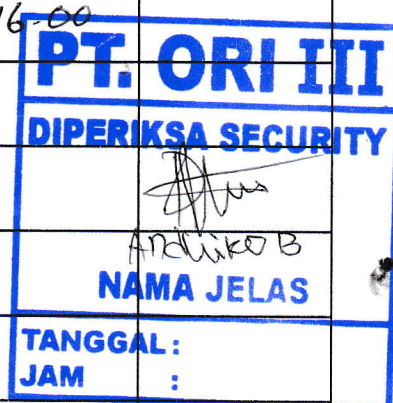 16-00
PT. ORI III
DIPERIKSA SECURITY
Andhiko B
NAMA JELAS
TANGGAL :
JAM :